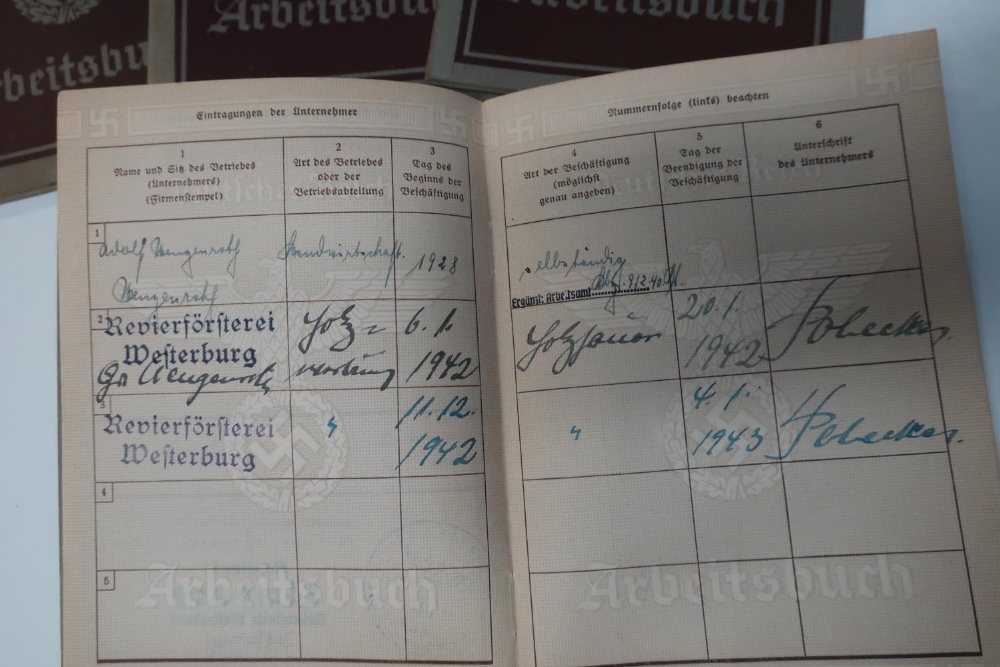 Arbeitsbu
Arbeitsbu
Arbeitsbuch
Eintragungen der Unternehmer
Nummernfolge (links) beachten
1
Name und Sitz des Betriebes
(Unternehmers)
(Firmenstempel)
2
Art des Betriebes
oder der
Betriebsabteilung
3
Tag des
Beginns der
Beschäftigung
4
Art der Beschäftigung
(möglichst
genau angeben)
5
Tag der
Beendigung der
Beschäftigung
6
Unterschrift
des Unternehmers
1
Adolf Wengenroth
Wengenroth
Landwirtschaft
1928
selbständig
Ergänzt: Arbeitsamt
9/2.40
2
Revierförsterei
Westerburg
Wengenroth
Holz=
6. 1.
1942
Holzhauer
20. 1.
1942
3
Revierförsterei
Westerburg
"
11. 12.
1942
"
4. 1.
1943
4
5
Deutsches Reich
Arbeitsbuch
Arbeitsbuch